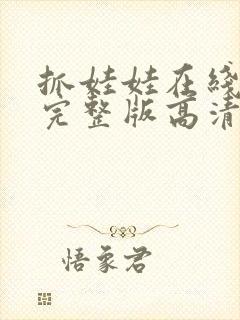 抓娃娃在线
完整版高清
悟象君